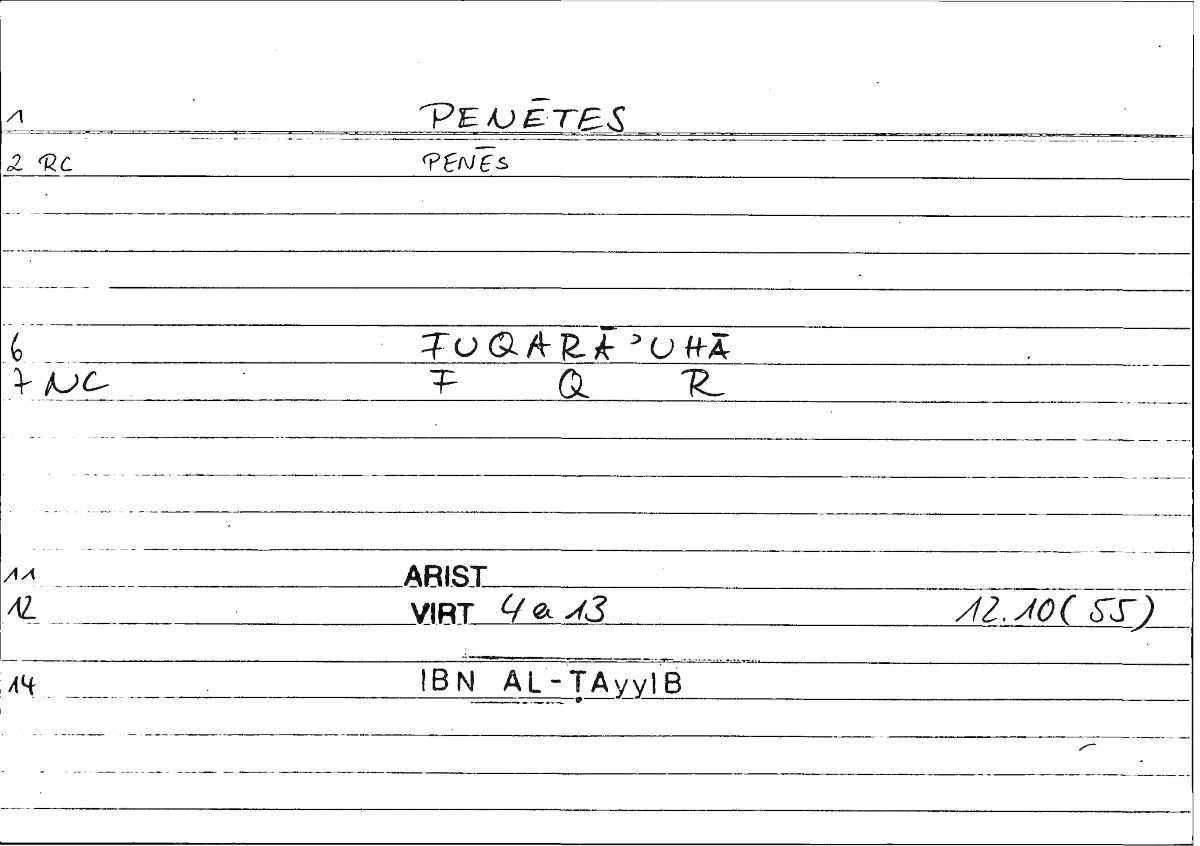 1 PENĒTES
2 RC PENĒS
6 FUQARĀ'UHĀ
7 NC F Q R
11 ARIST
12 VIRT 4 a 13 12.10 (55)
14 IBN AL-ṬAyyIB